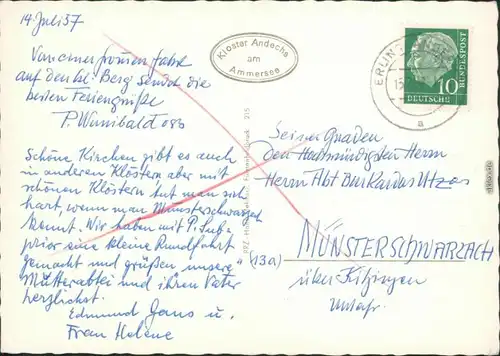 14. Juli 57
Von einer frohen Fahrt
auf den hl. Berg sendet die
besten Feriengrüße
P. Wunibald OSB
Schöne Kirchen gibt es auch
in anderen Klöstern aber mit
schönen Klöstern tut man sich
hart, wenn man Münsterschwarzach
kennt. Wir haben mit P. Sub-
prior eine kleine Rundfahrt
gemacht und grüßen unsere
Mutterabtei und ihren Vater
herzlichst.
Edmund Jans u.
Frau Helene
Kloster Andechs
am
Ammersee
215
ERLING
a
10
DEUTSCHE
BUNDESPOST
Seiner Gnaden
den Hochwürdigsten Herrn
Herrn Abt Burkardus Utz OSB
(13a) MÜNSTERSCHWARZACH
über Kitzingen
Unterfr.